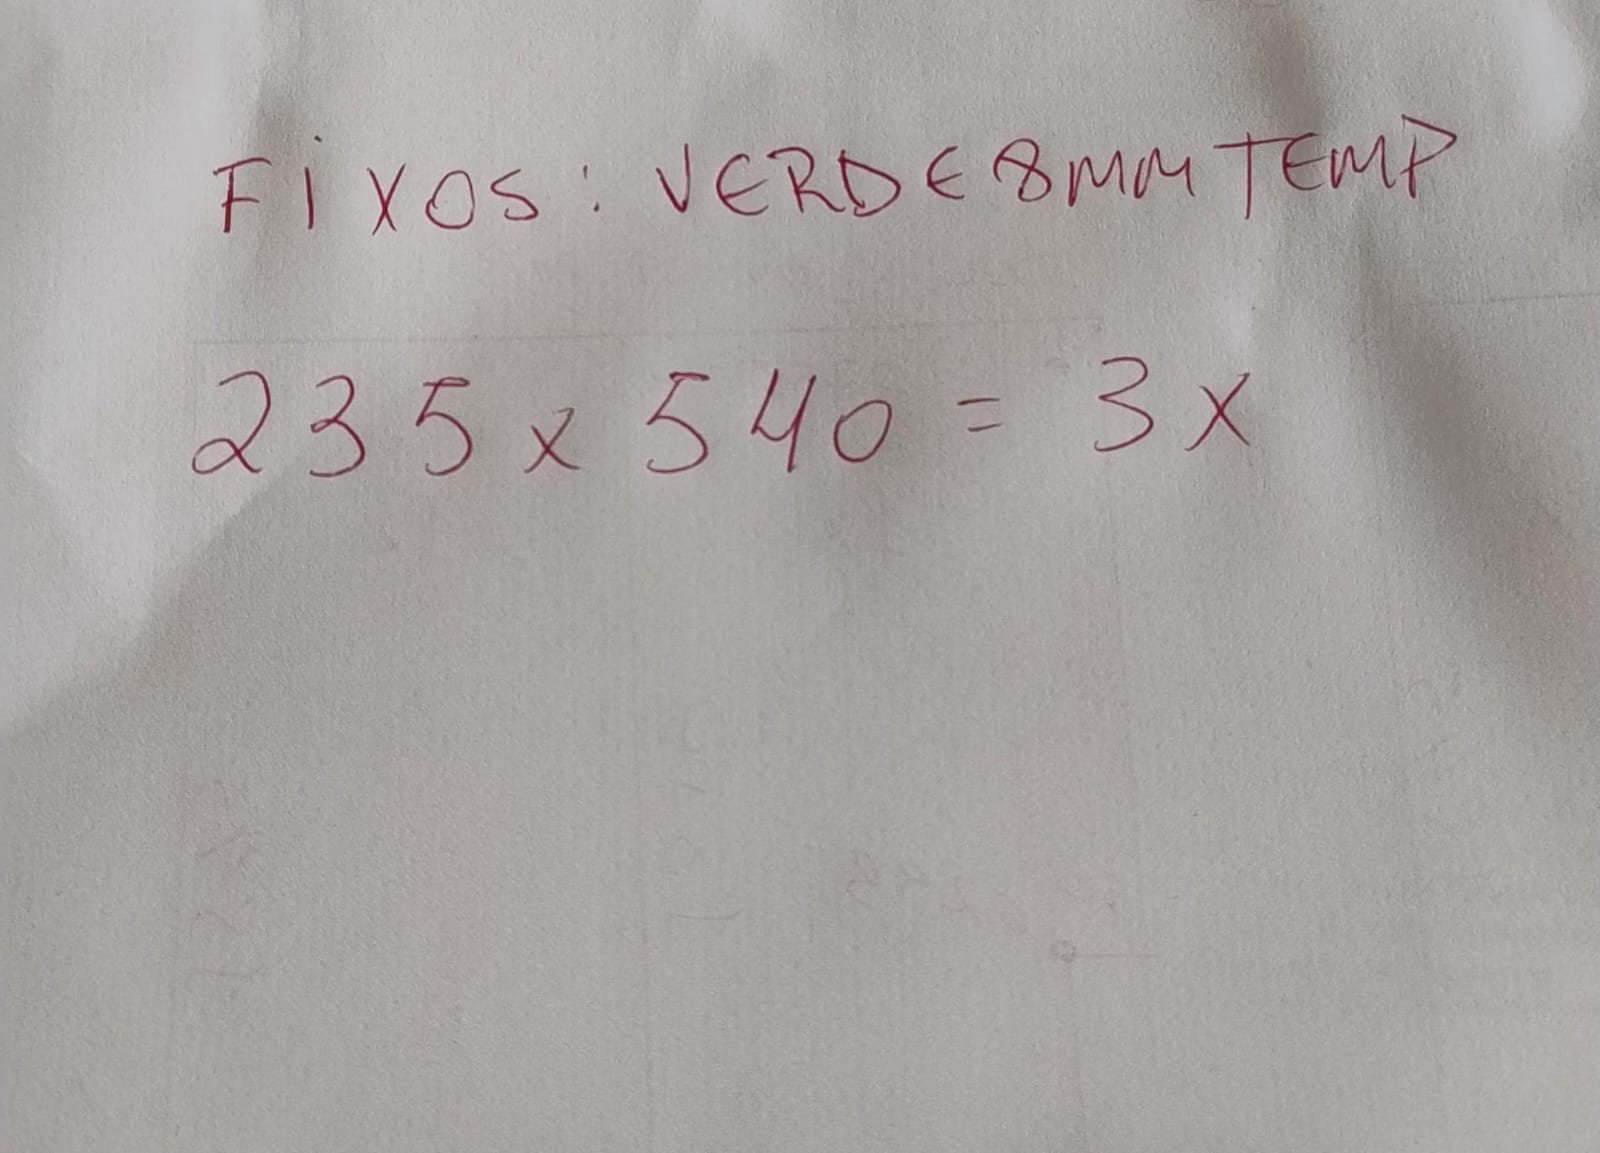 FiXOS: VERDE 8MM TEMP
235 x 540 = 3x